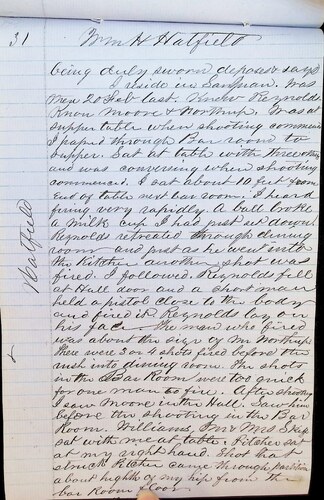 31
Wm H Hatfield
being duly sworn deposes & says
I reside in Sanpran. Was
here 20 Feb last. Knew Reynolds.
Know Moore & Northrup. Was at
supper table when shooting commenced
I passed through Bar room to
supper. Sat at table with three others
and was conversing when shooting
commenced. I sat about 10 feet from
End of table next bar room. I heard
firing very rapidly. A ball broke
a milk cup I had just set down
Reynolds retreated through dining
room and just as he went into
the Kitchen another shot was
fired. I followed. Reynolds fell
at Hall door and a short man
held a pistol close to the body
and fired it Reynolds lay on
his face. The man who fired
was about the size of Mr Northrup
There were 3 or 4 shots fired before the
rush into dining room. The shots
in the Bar Room were too quick
for one man to fire. After shooting
I saw Moore in the Hall. Saw him
before the shooting in the Bar
Room. Williams, Mr & Mrs
sat with me at table. Pilcher sat
at my right hand. Shot that
struck Pilcher came through partition
about highth of my hip from the
bar Room floor
Hatfield